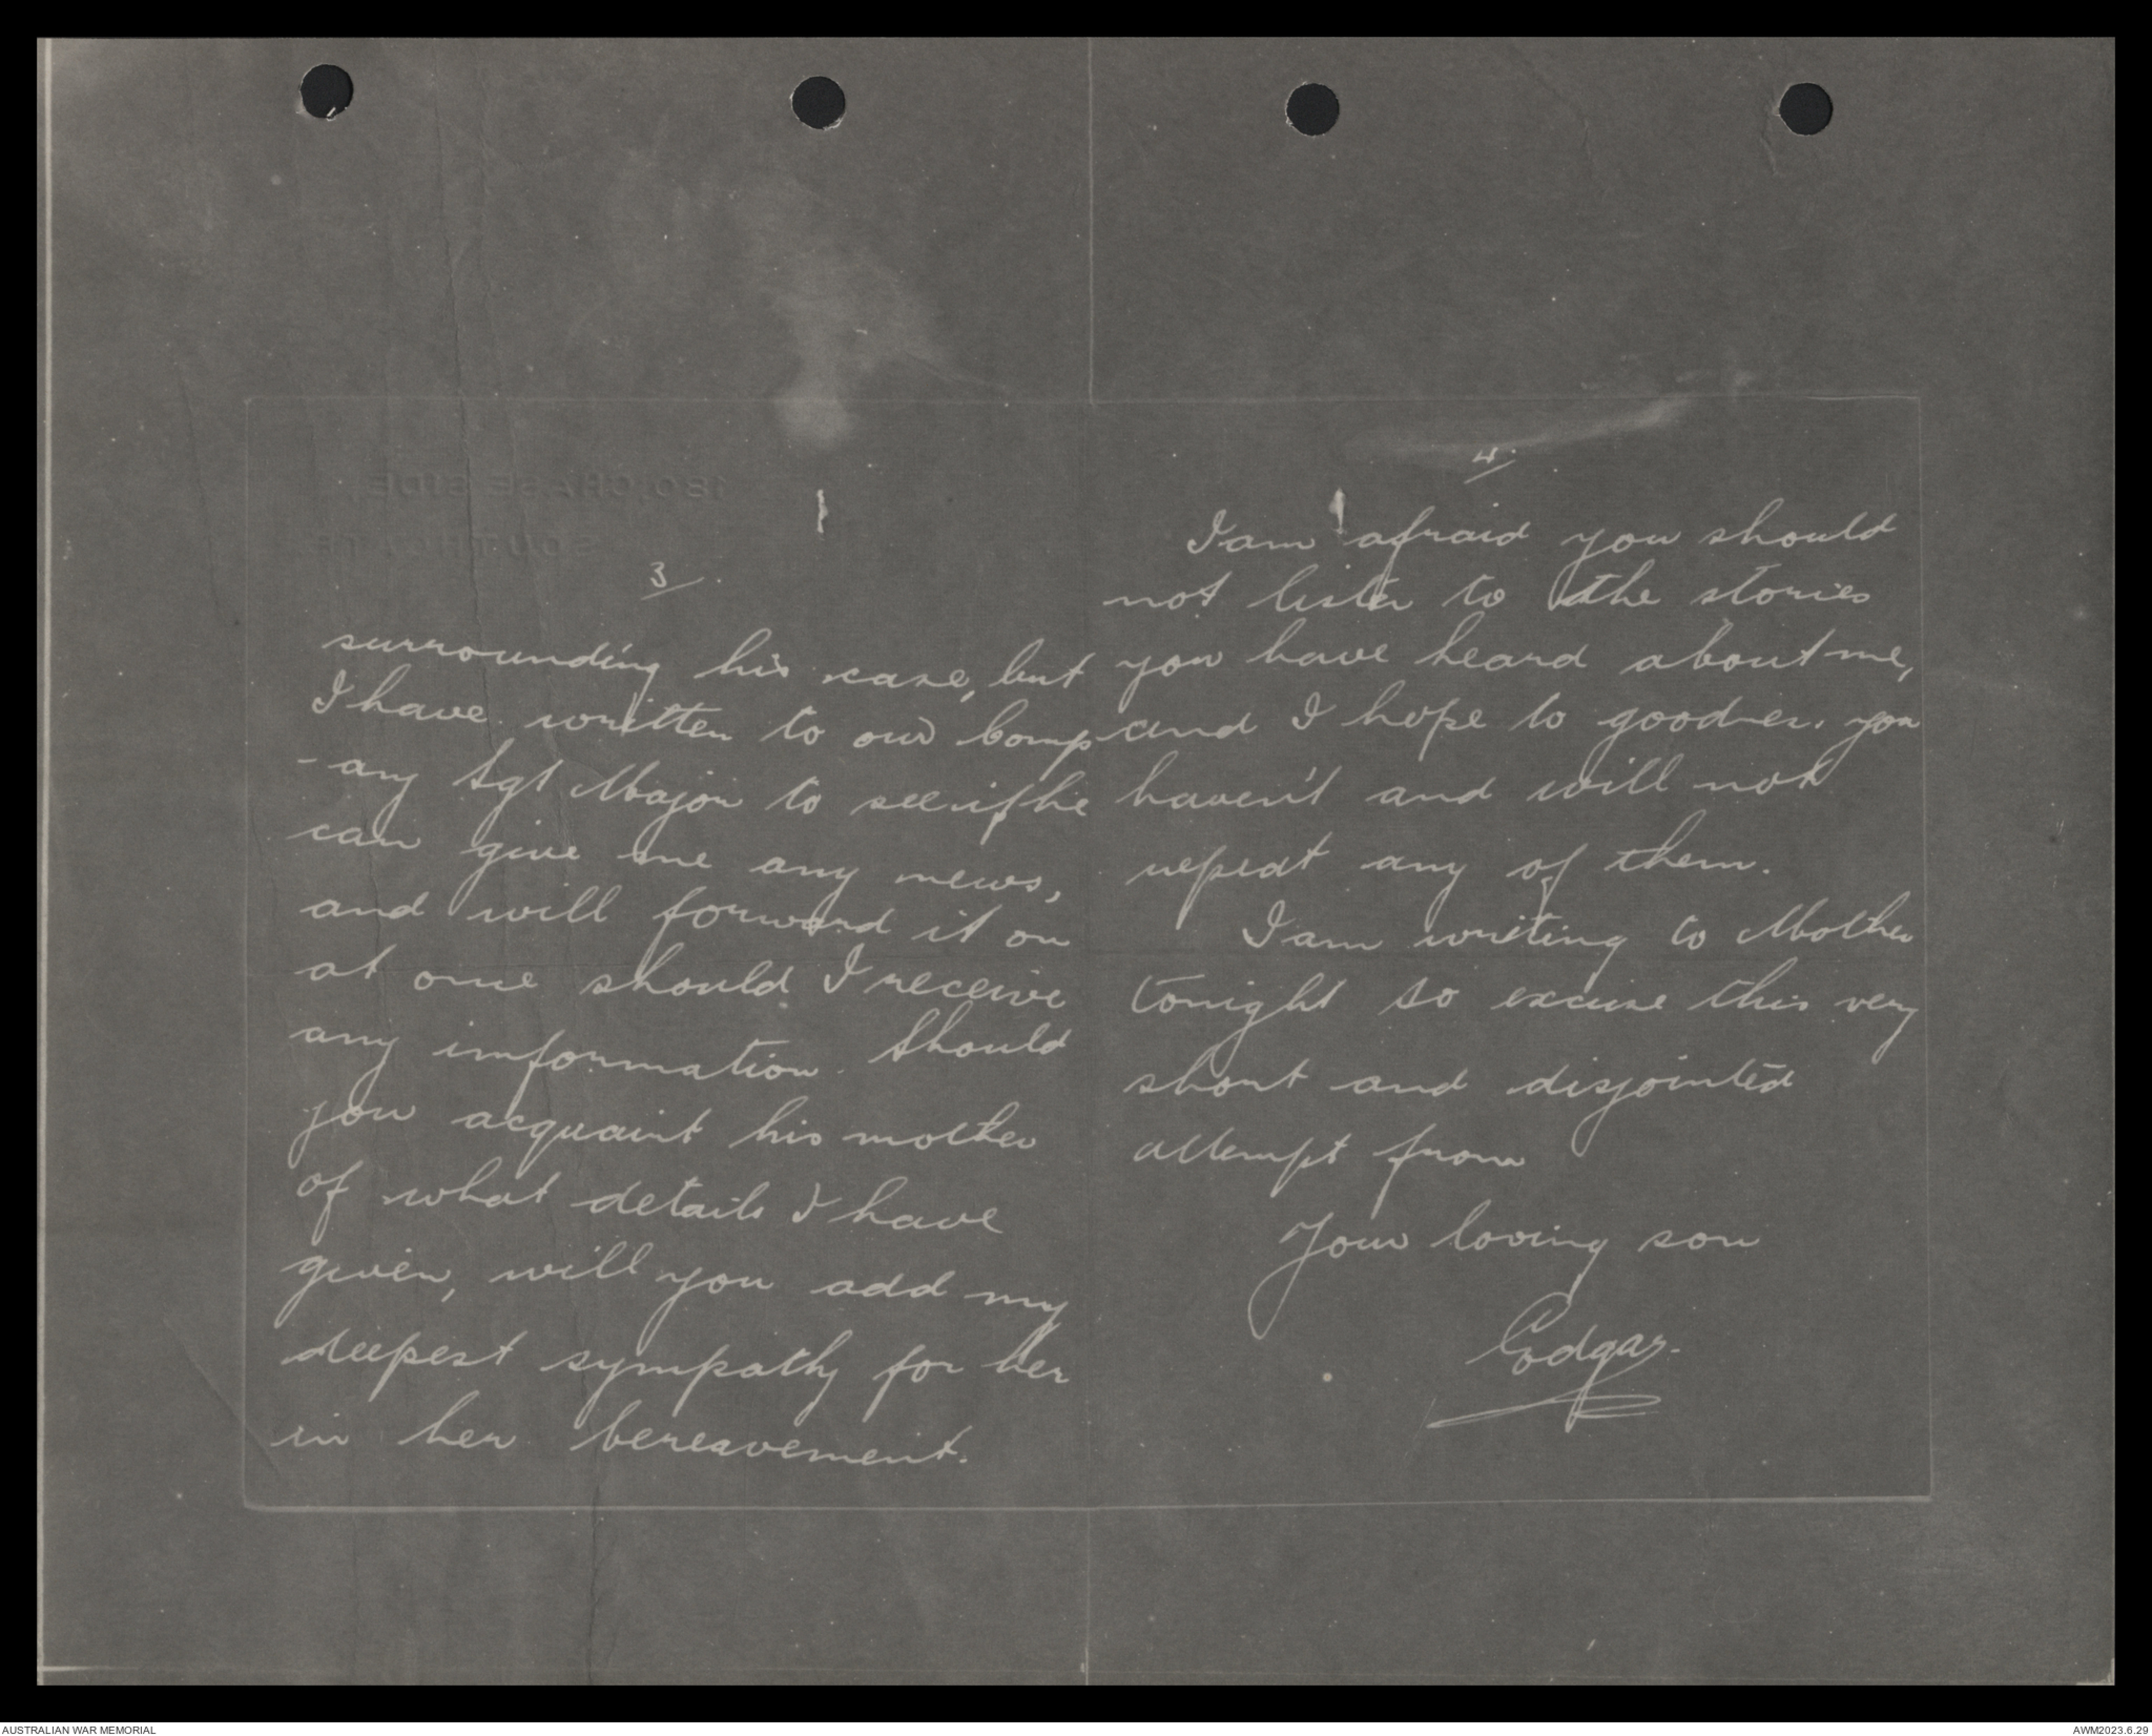 180, CHASE SIDE,
SOUTHGATE
3
surrounding his case, but
I have written to our Comp
-any Sgt Major to see if he
can give me any news,
and will forward it on
at once should I receive
any information. Should
you acquaint his mother
of what details I have
given, will you add my
deepest sympathy for her
in her bereavement.
4.
I am afraid you should
not listen to the stories
you have heard about me,
and I hope to goodness you
haven't and will not
repeat any of them.
I am writing to Mother
tonight so excuse this very
short and disjointed
attempt from
Your loving son
Edgar.
AUSTRALIAN WAR MEMORIAL
AWM2023.6.29